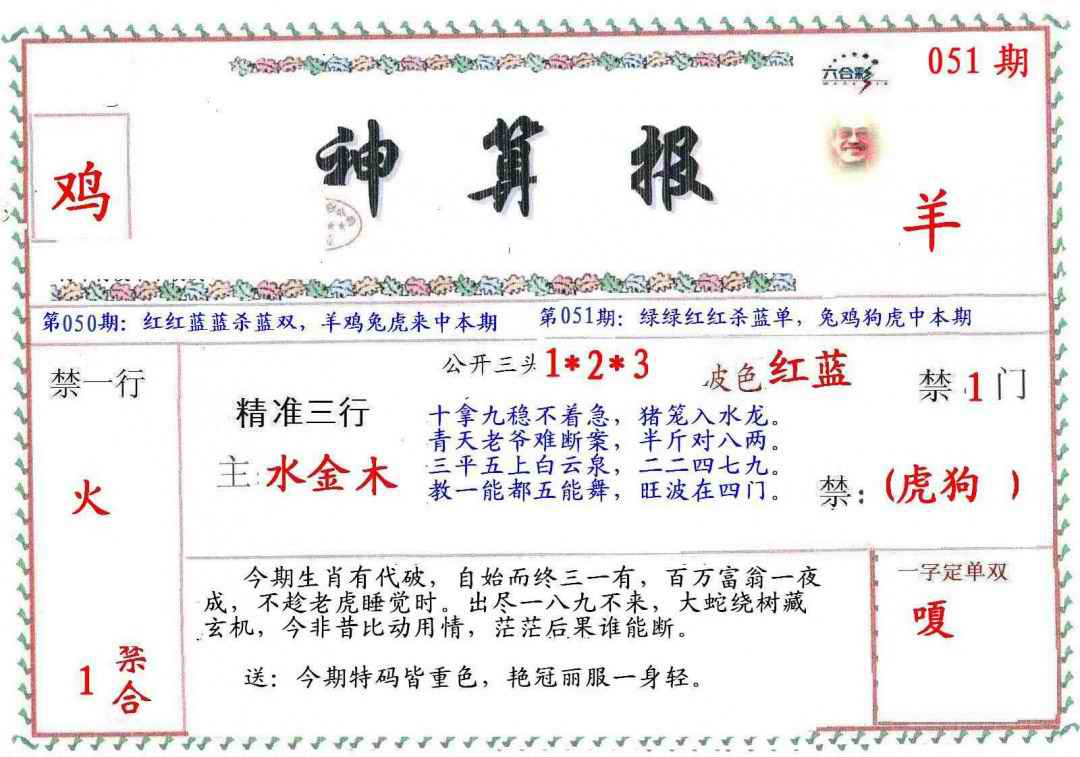 051 期
六合彩
神算报
鸡
羊
第050期：红红蓝蓝杀蓝双，羊鸡兔虎来中本期
第051期：绿绿红红杀蓝单，兔鸡狗虎中本期
禁一行
火
1 禁合
公开三头 1*2*3
波色 红蓝
禁 1 门
精准三行
主：水金木
十拿九稳不着急，猪笼入水龙。
青天老爷难断案，半斤对八两。
三平五上白云泉，二二四七九。
教一能都五能舞，旺波在四门。
禁：(虎狗 )
今期生肖有代破，自始而终三一有，百万富翁一夜
成，不趁老虎睡觉时。出尽一八九不来，大蛇绕树藏
玄机，今非昔比动用情，茫茫后果谁能断。
送：今期特码皆重色，艳冠丽服一身轻。
一字定单双
嘎